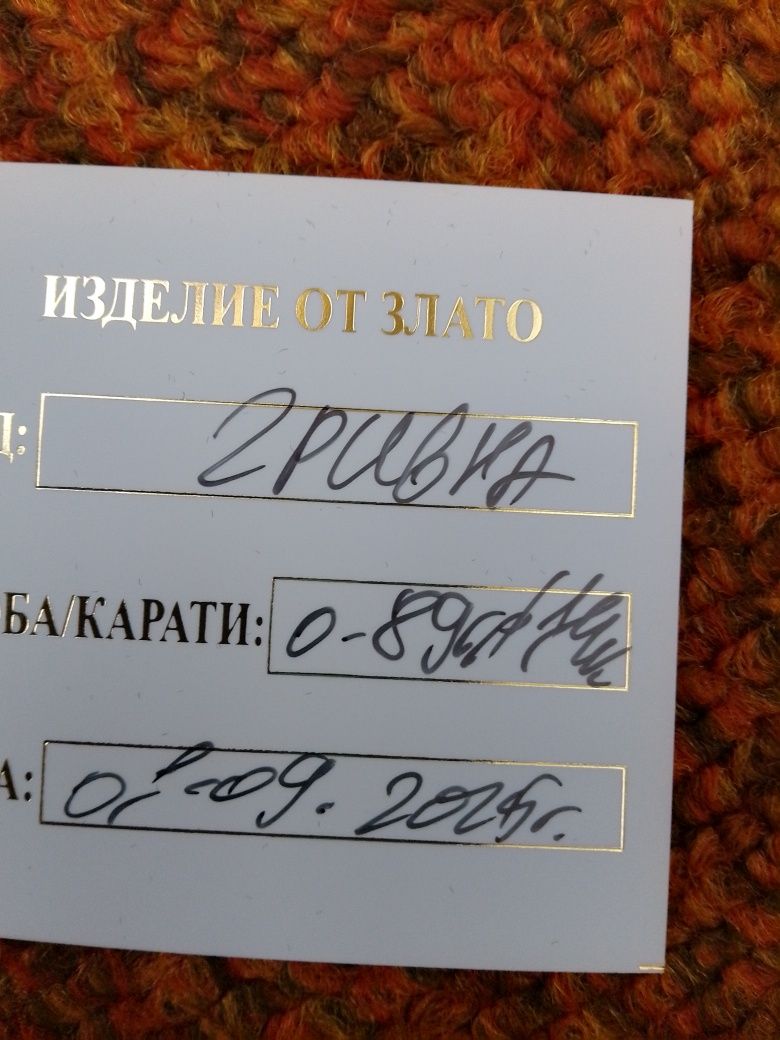 ИЗДЕЛИЕ ОТ ЗЛАТО
Д: ГРИВНА
БА/КАРАТИ: 0-89
А: 01-09.2025г.